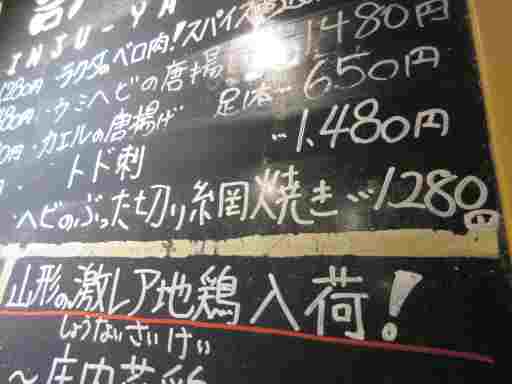 INSU-YA
1280円・ラクダのベロ肉!スパイス
80円・ウミヘビの唐揚 … 1,480円
0円・カエルの唐揚げ 足1本… 650円
・トド刺 … 1,480円
・ヘビのぶった切り網焼き … 1280円
山形の激レア地鶏入荷!
しょうないさいけい
〜庄内